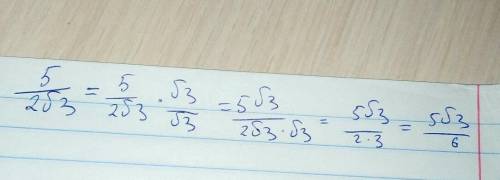 5/(2√3) = 5/(2√3) · √3/√3 = 5√3/(2√3·√3) = 5√3/(2·3) = 5√3/6